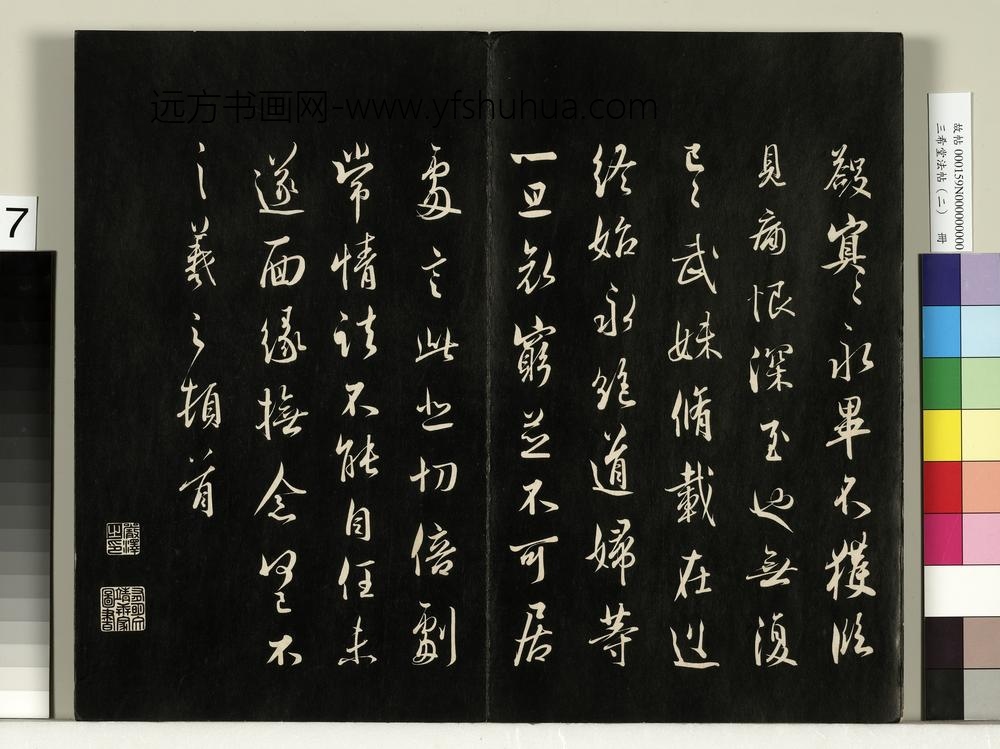 远方书画网-www.yfshuhua.com
永畢不獲臨
見痛恨深至也無復
已〻武妹脩載在遠
終始永絕道婦等
一旦哀窮並不可居
處言此悲切倍劇
常情諸不能自任未
遂面緣撫念何已不
之羲之頓首
故帖 000159N000000000
三希堂法帖(二) 冊
7